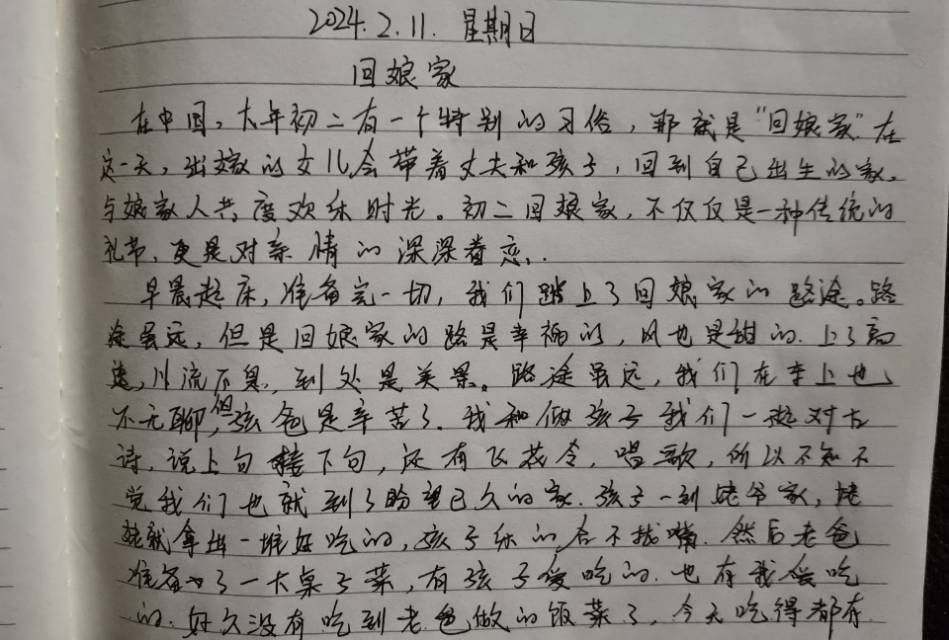 2024.2.11. 星期日
回娘家
在中国，大年初二有一个特别的习俗，那就是“回娘家”在
这一天，出嫁的女儿会带着丈夫和孩子，回到自己出生的家，
与娘家人共度欢乐时光。初二回娘家，不仅仅是一种传统的
礼节，更是对亲情的深深眷恋..
早晨起床，准备完一切，我们踏上了回娘家的路途。路
途虽远，但是回娘家的路是幸福的，风也是甜的. 上了高
速，川流不息，到处是美景。路途虽远，我们在车上也
不无聊，但孩爸是辛苦了. 我和俩孩子我们一起对古
诗，说上句接下句，还有飞花令，唱歌，所以不知不
觉我们也就到了盼望已久的家. 孩子一到姥爷家，姥
姥就拿出一堆好吃的，孩子乐的合不拢嘴. 然后老爸
准备了一大桌子菜，有孩子爱吃的. 也有我爱吃
的. 好久没有吃到老爸做的饭菜了，今天吃得都有